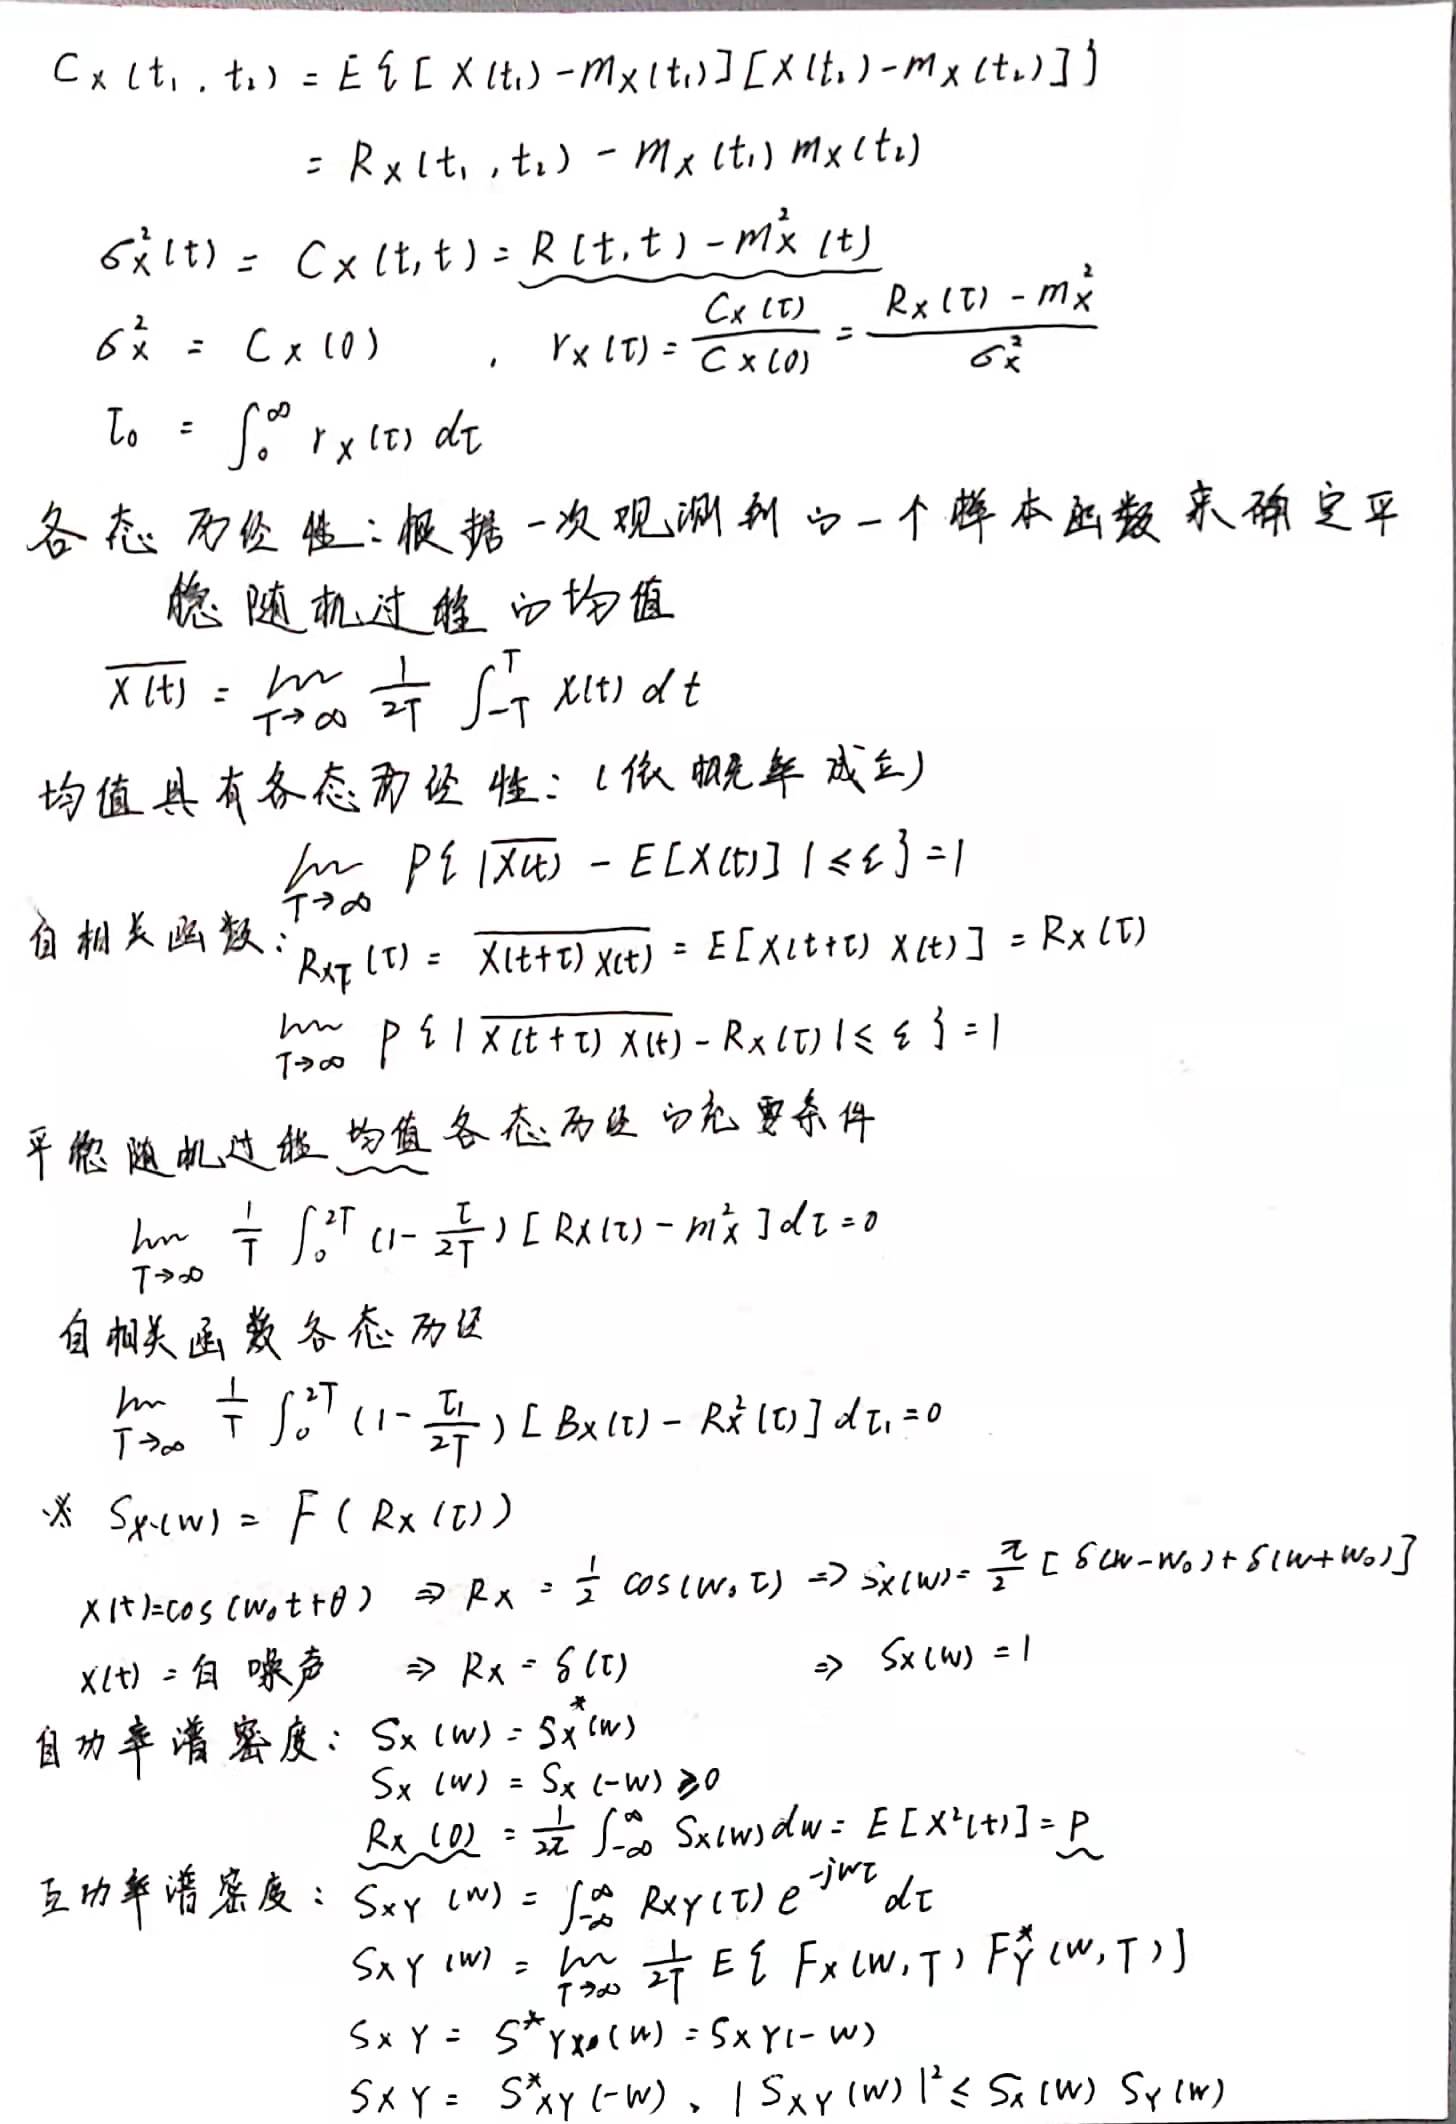 C_X(t₁, t₂) = E{[X(t₁) - m_X(t₁)][X(t₂) - m_X(t₂)]}
= R_X(t₁, t₂) - m_X(t₁) m_X(t₂)
σ_X²(t) = C_X(t, t) = R(t, t) - m_X²(t)
σ_X² = C_X(0) , r_X(τ) = C_X(τ)/C_X(0) = (R_X(τ) - m_X²)/σ_X²
τ₀ = ∫₀^∞ r_X(τ) dτ
各态历经性:根据一次观测到的一个样本函数来确定平
稳随机过程的均值
\overline{X(t)} = lim_{T→∞} 1/2T ∫_{-T}^{T} X(t) dt
均值具有各态历经性:(依概率成立)
lim_{T→∞} P{|\overline{X(t)} - E[X(t)]| ≤ ε} = 1
自相关函数: R_{XT}(τ) = \overline{X(t+τ) X(t)} = E[X(t+τ) X(t)] = R_X(τ)
lim_{T→∞} P{|\overline{X(t+τ) X(t)} - R_X(τ)| ≤ ε} = 1
平稳随机过程均值各态历经的充要条件
lim_{T→∞} 1/T ∫₀^{2T} (1 - τ/2T)[R_X(τ) - m_X²] dτ = 0
自相关函数各态历经
lim_{T→∞} 1/T ∫₀^{2T} (1 - τ₁/2T)[B_X(τ) - R_X²(τ)] dτ₁ = 0
※ S_X(w) = F(R_X(τ))
X(t)=cos(w₀t+θ) ⇒ R_X = 1/2 cos(w₀τ) ⇒ S_X(w) = π/2 [δ(w-w₀)+δ(w+w₀)]
X(t) = 白噪声 ⇒ R_X = δ(τ) ⇒ S_X(w) = 1
自功率谱密度: S_X(w) = S_X*(w)
S_X(w) = S_X(-w) ≥ 0
R_X(0) = 1/2π ∫_{-∞}^{∞} S_X(w) dw = E[X²(t)] = P
互功率谱密度: S_{XY}(w) = ∫_{-∞}^{∞} R_{XY}(τ) e^{-jwτ} dτ
S_{XY}(w) = lim_{T→∞} 1/2T E{F_X(w,T) F_Y*(w,T)]
S_{XY} = S*_{YX}(w) = S_{XY}(-w)
S_{XY} = S*_{XY}(-w)、|S_{XY}(w)|² ≤ S_X(w) S_Y(w)